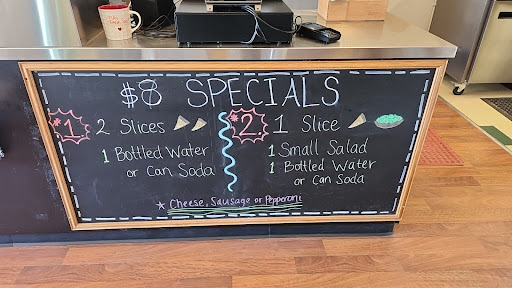 $8 SPECIALS
*1.
2 Slices
1 Bottled Water
or Can Soda
*2.
1 Slice
1 Small Salad
1 Bottled Water
or Can Soda
* Cheese, Sausage or Pepperoni